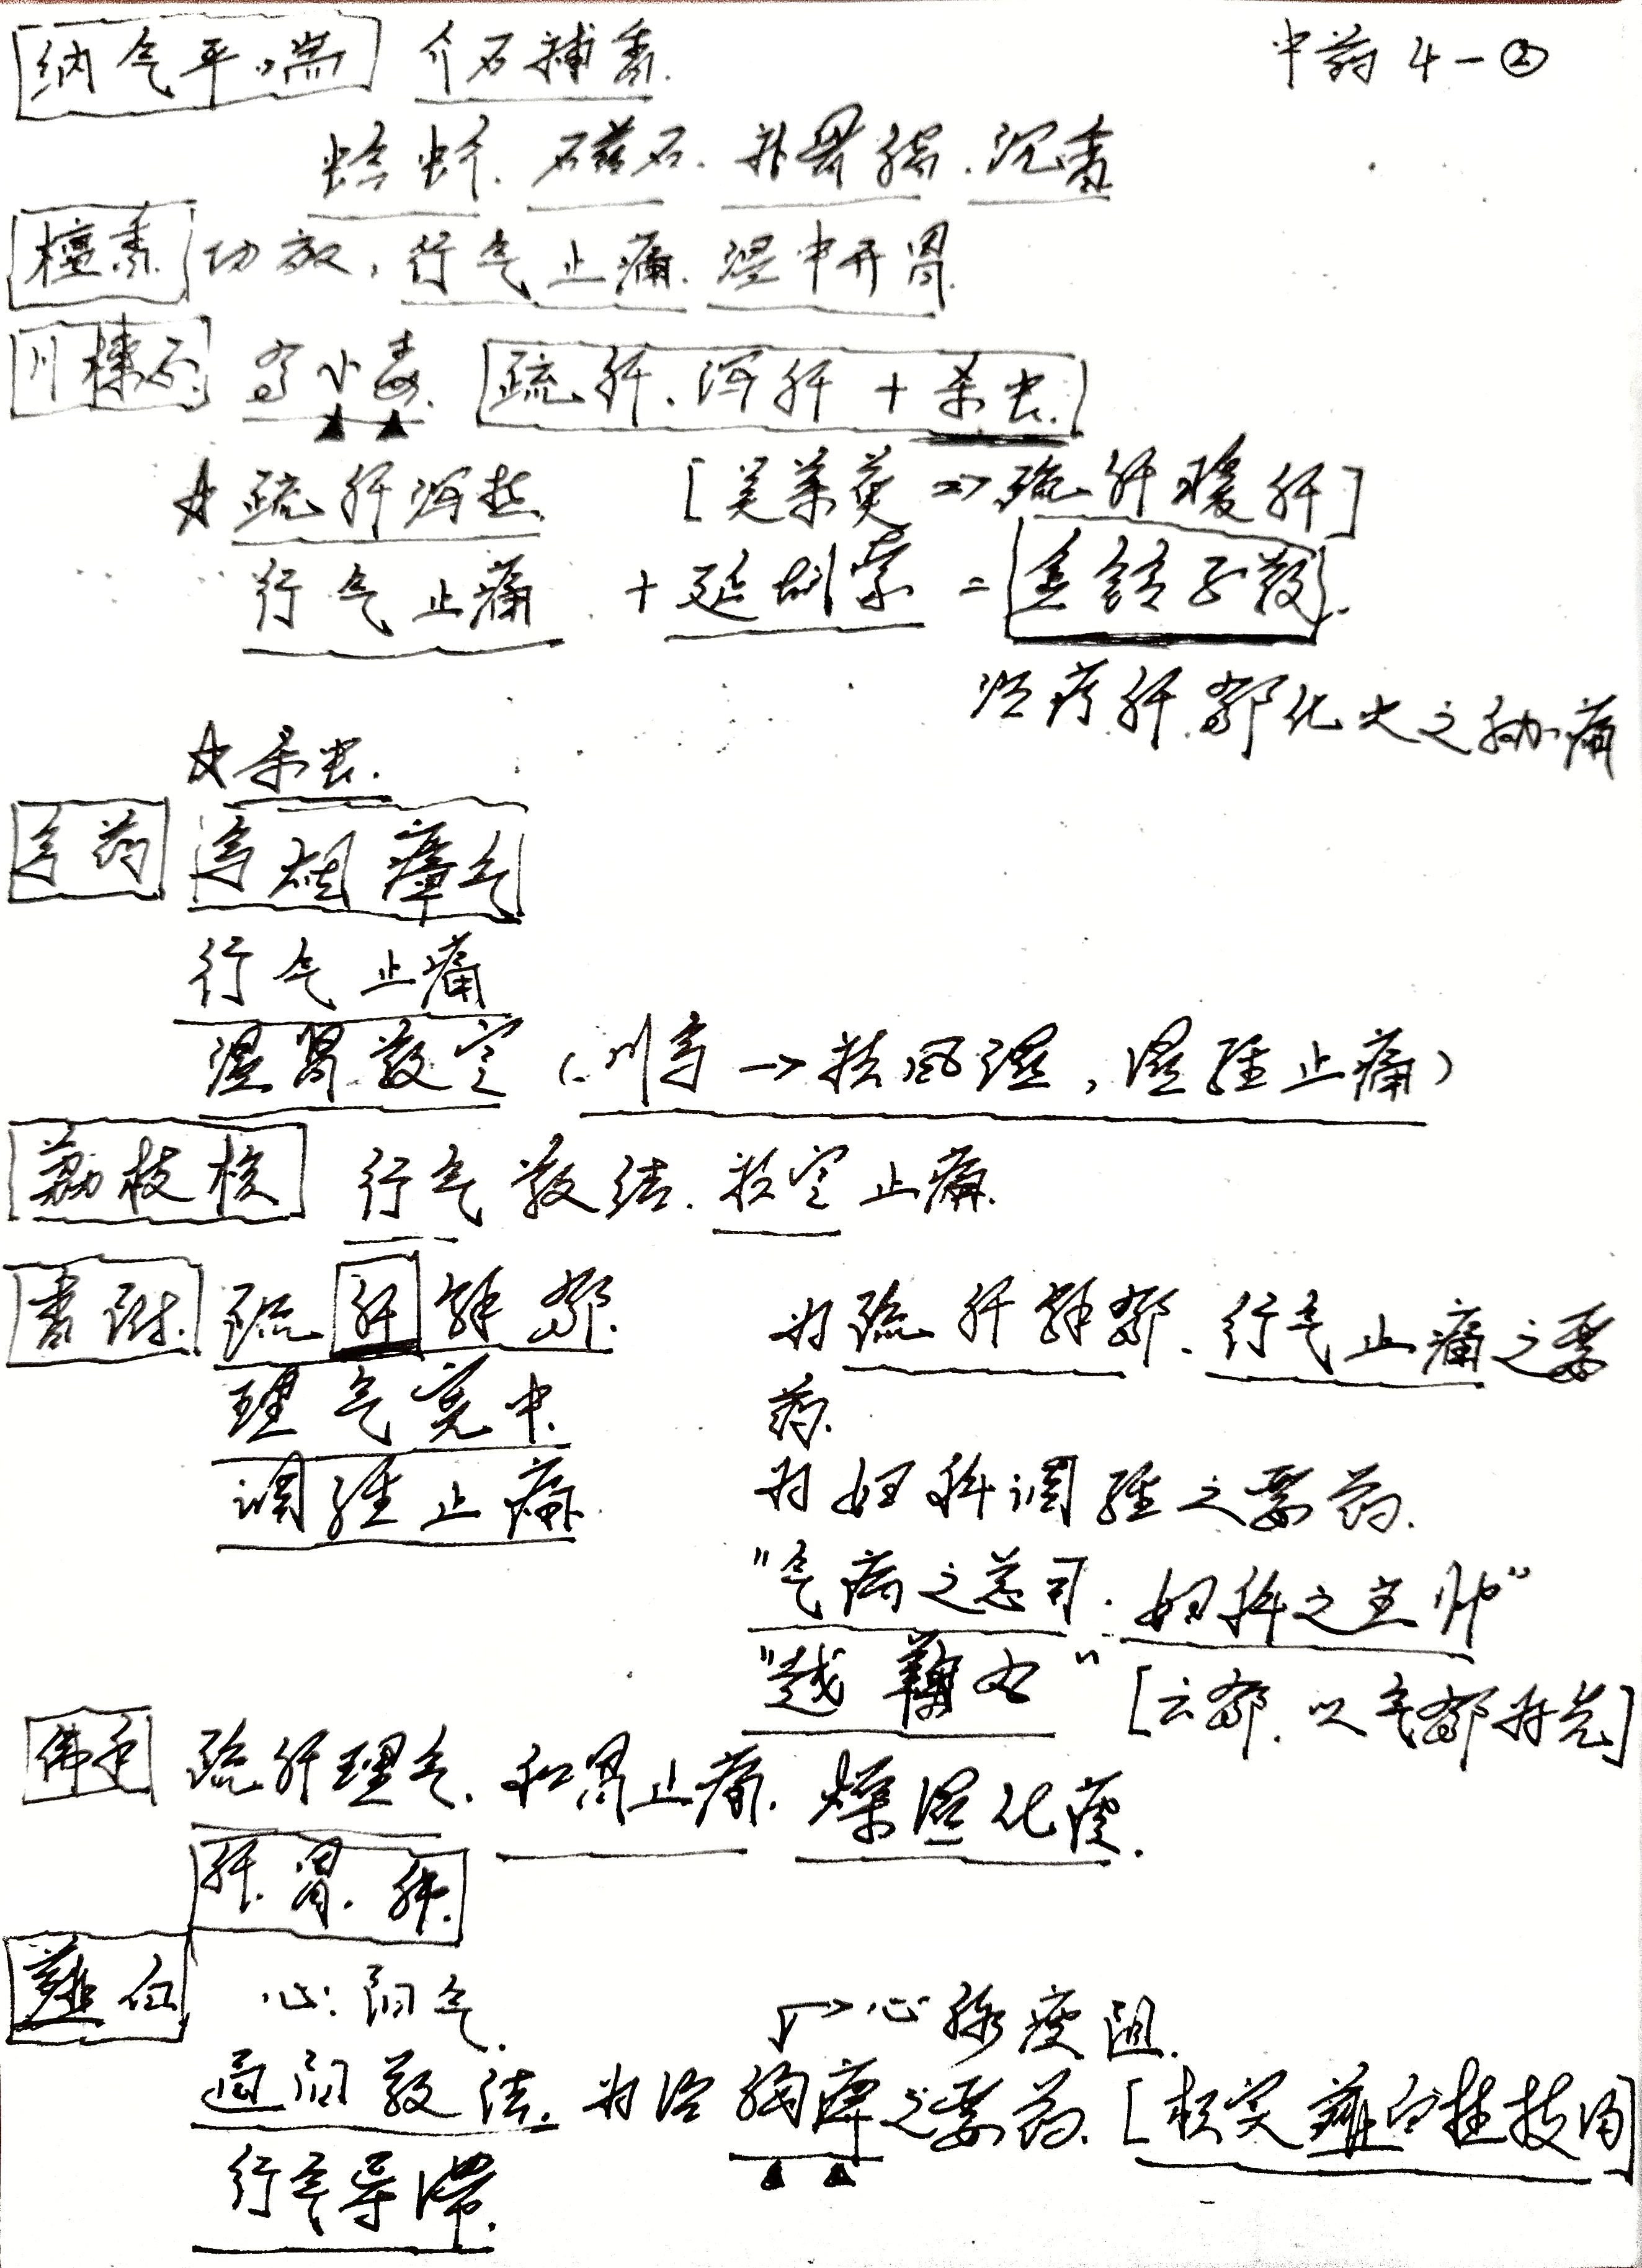 纳气平喘 介石补香. 中药 4-②
蛤蚧. 磁石. 补骨脂. 沉香
檀香 功效: 行气止痛. 温中开胃.
川楝子 有小毒. 疏肝. 泻肝 + 杀虫.
☆ 疏肝泻热 [吴茱萸 => 疏肝暖肝]
行气止痛 + 延胡索 = 金铃子散.
治疗肝郁化火之胁痛
☆ 杀虫.
乌药 乌烟瘴气
行气止痛
温肾散寒 (川乌 → 祛风湿, 温经止痛)
荔枝核 行气散结. 散寒止痛.
香附. 疏肝解郁. 为疏肝解郁. 行气止痛之要
理气宽中. 药.
调经止痛. 为妇科调经之要药.
"气病之总司. 妇科之主帅"
"越鞠丸" [六郁. 以气郁为先]
佛手 疏肝理气. 和胃止痛. 燥湿化痰.
肝. 胃. 肺.
薤白 心: 阳气. → 心脉痰阻.
通阳散结. 为治胸痹之要药. [枳实薤白桂枝汤]
行气导滞.